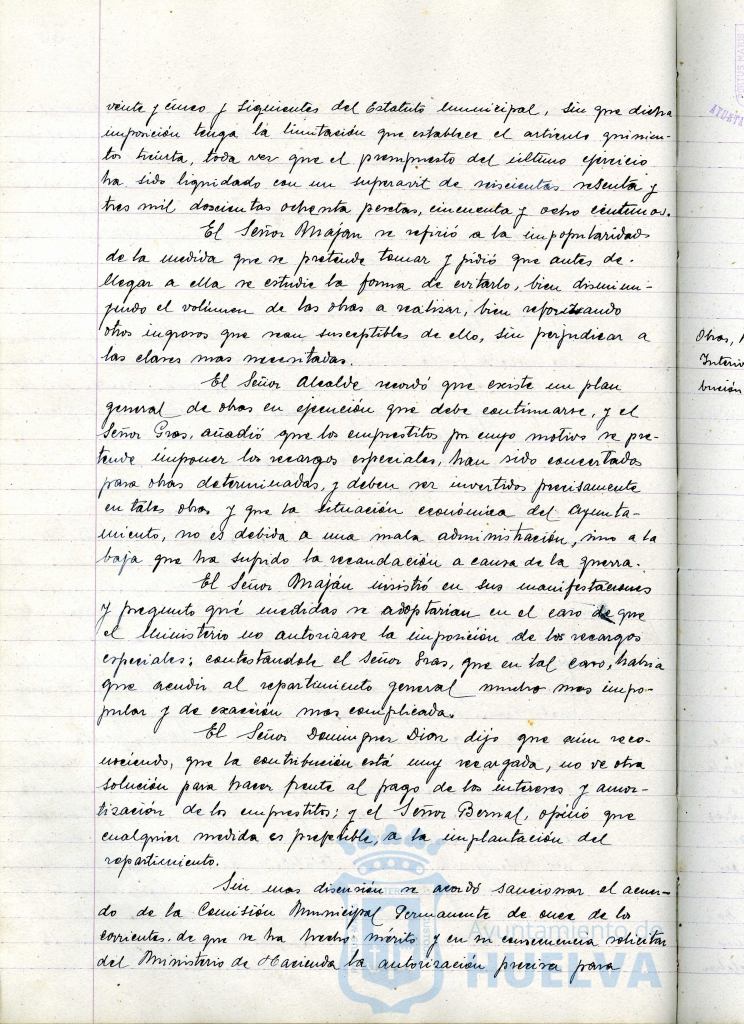 veinte y cinco y siguientes del Estatuto municipal, sin que dicha
imposición tenga la limitación que establece el articulo quinien-
tos treinta, toda vez que el presupuesto del último ejercicio
ha sido liquidado con un superavit de seiscientas sesenta y
tres mil doscientas ochenta pesetas, cincuenta y ocho centimos.
El Señor Maján se refirió a la impopularidad
de la medida que se pretende tomar y pidió que antes de
llegar a ella se estudie la forma de evitarlo, bien disminu-
yendo el volúmen de las obras a realizar, bien reforzando
otros ingresos que sean susceptibles de ello, sin perjudicar a
las clases mas necesitadas.
El Señor Alcalde recordó que existe un plan
general de obras en ejecución que debe continuarse, y el
Señor Gras, añadió que los emprestitos por cuyo motivo se pre-
tende imponer los recargos especiales, han sido concertados
para obras determinadas, y deben ser invertidos precisamente
en tales obras y que la situación económica del Ayunta-
miento, no es debida a una mala administración, sino a la
baja que ha sufrido la recaudación a causa de la guerra.
El Señor Maján insistió en sus manifestaciones
y pregunto qué medidas se adoptarian en el caso de que
el Ministerio no autorizase la imposición de los recargos
especiales; contestandole el Señor Gras, que en tal caso, habria
que acudir al repartimiento general mucho mas impo-
pular y de exacción mas complicada.
El Señor Dominguez Diaz dijo que aún reco-
nociendo, que la contribución está muy recargada, no ve otra
solución para hacer frente al pago de los intereses y amor-
tización de los emprestitos; y el Señor Bernal, opinó que
cualquier medida es preferible, a la implantación del
repartimiento.
Sin mas discusión se acordó sancionar el acuer-
do de la Comisión Municipal Permanente de once de los
corrientes, de que se ha hecho mérito y en su consecuencia solicitar
del Ministerio de Hacienda la autorización precisa para
Obras,
Interio
bución
Ayuntamiento de
HUELVA